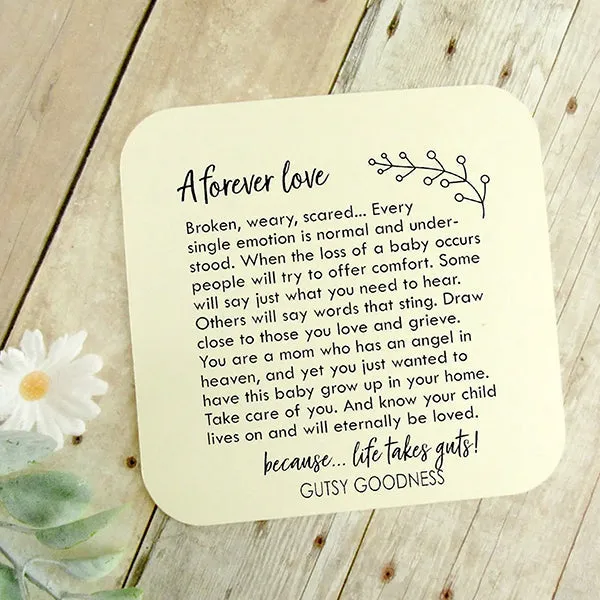 A forever love
Broken, weary, scared... Every
single emotion is normal and under-
stood. When the loss of a baby occurs
people will try to offer comfort. Some
will say just what you need to hear.
Others will say words that sting. Draw
close to those you love and grieve.
You are a mom who has an angel in
heaven, and yet you just wanted to
have this baby grow up in your home.
Take care of you. And know your child
lives on and will eternally be loved.
because... life takes guts!
GUTSY GOODNESS